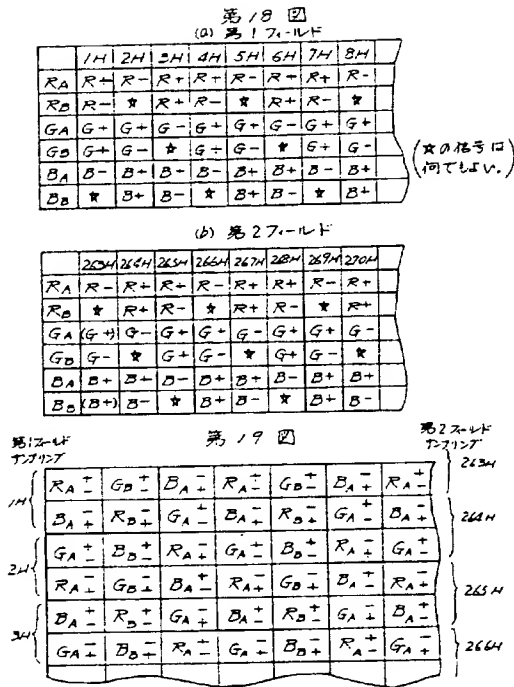 第18図
(a) 第1フィールド
1H 2H 3H 4H 5H 6H 7H 8H
RA R+ R- R+ R+ R- R+ R+ R-
RB R- ☆ R+ R- ☆ R+ R- ☆
GA G+ G+ G- G+ G+ G- G+ G+
GB G+ G- ☆ G+ G- ☆ G+ G-
BA B- B+ B+ B- B+ B+ B- B+
BB ☆ B+ B- ☆ B+ B- ☆ B+
(☆の信号は
何でもよい。)
(b) 第2フィールド
263H 264H 265H 266H 267H 268H 269H 270H
RA R- R+ R+ R- R+ R+ R- R+
RB ☆ R+ R- ☆ R+ R- ☆ R+
GA (G+) G- G+ G+ G- G+ G+ G-
GB G- ☆ G+ G- ☆ G+ G- ☆
BA B+ B+ B- B+ B+ B- B+ B+
BB (B+) B- ☆ B+ B- ☆ B+ B-
第19図
第1フィールド
サンプリング
第2フィールド
サンプリング
1H
2H
3H
263H
264H
265H
266H
RA+- GB+- BA-+ RA-+ GB-+ BA+- RA+-
BA-+ RB-+ GA-+ BA+- RB+- GA+- BA-+
GA+- BB+- RA-+ GA-+ BB-+ RA+- GA+-
RA+- GB+- BA-+ RA-+ GB-+ BA+- RA+-
BA-+ RB-+ GA-+ BA+- RB+- GA+- BA-+
GA+- BB+- RA-+ GA-+ BB-+ RA+- GA+-